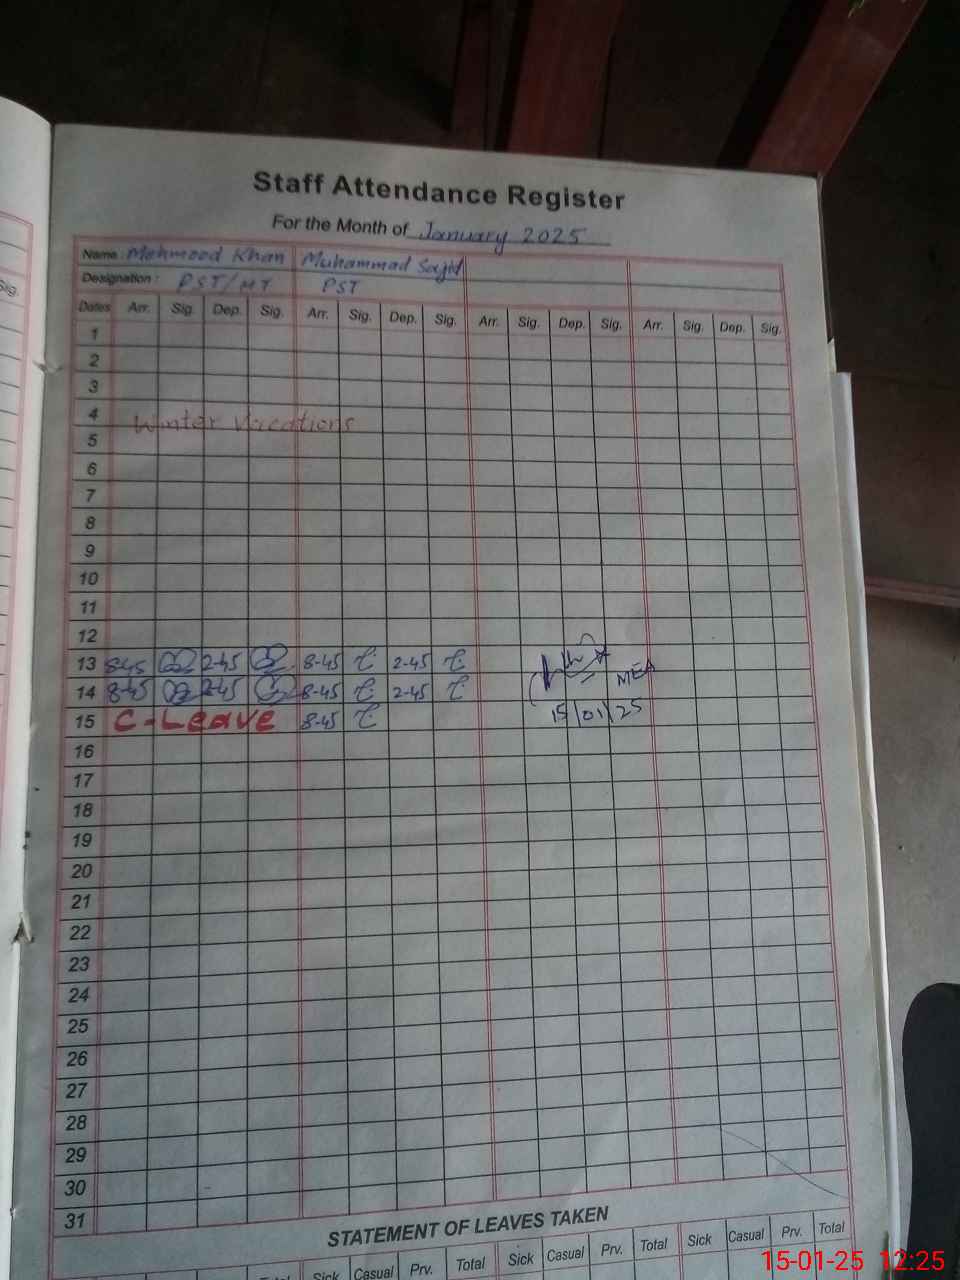 Staff Attendance Register
For the Month of January 2025
Sig.
Name : Mehmood Khan Muhammad Sajid
Designation : PST/HT PST
Dates Arr. Sig. Dep. Sig. Arr. Sig. Dep. Sig. Arr. Sig. Dep. Sig. Arr. Sig. Dep. Sig.
1
2
3
4
Winter Vacations
5
6
7
8
9
10
11
12
13 8-45 2-45 8-45 2-45
14 8-45 2-45 8-45 2-45 MEA
15 C-Leave 8-45 15/01/25
16
17
18
19
20
21
22
23
24
25
26
27
28
29
30
31
STATEMENT OF LEAVES TAKEN
Total Sick Casual Prv. Total Sick Casual Prv. Total Sick Casual Prv. Total
15-01-25 12:25